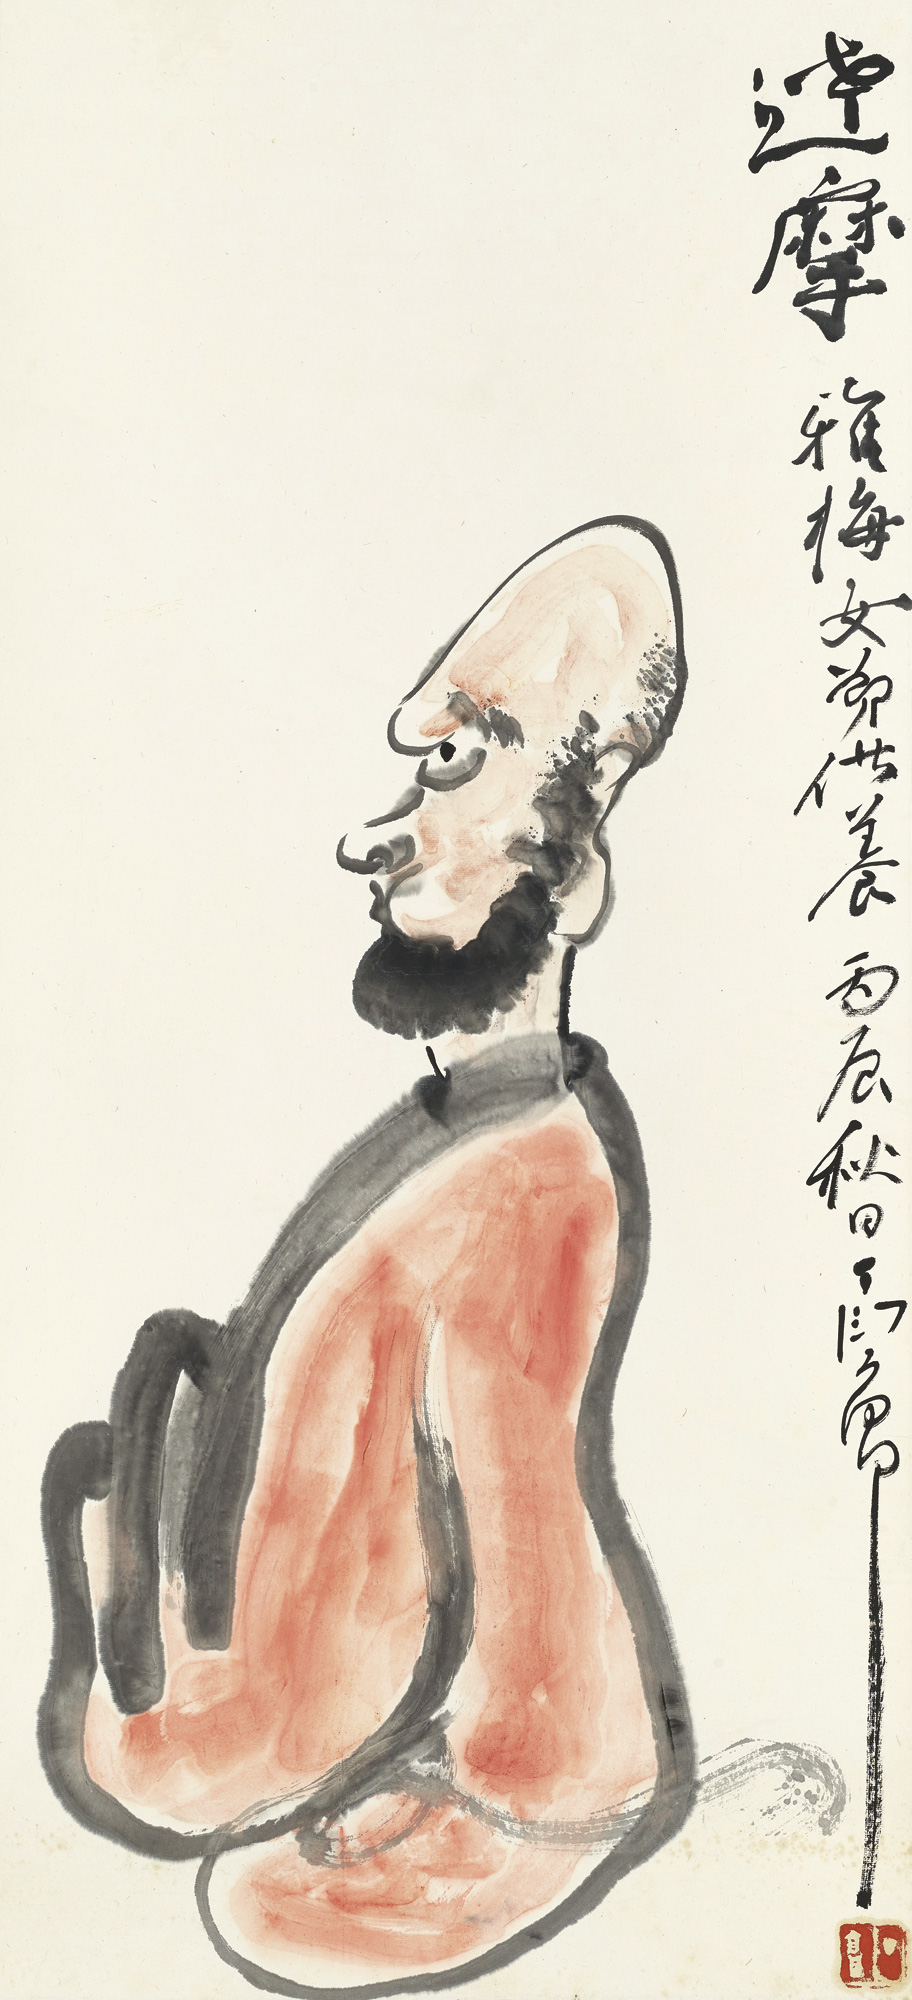 達摩 雅梅女供養 丙辰秋日丁衍庸